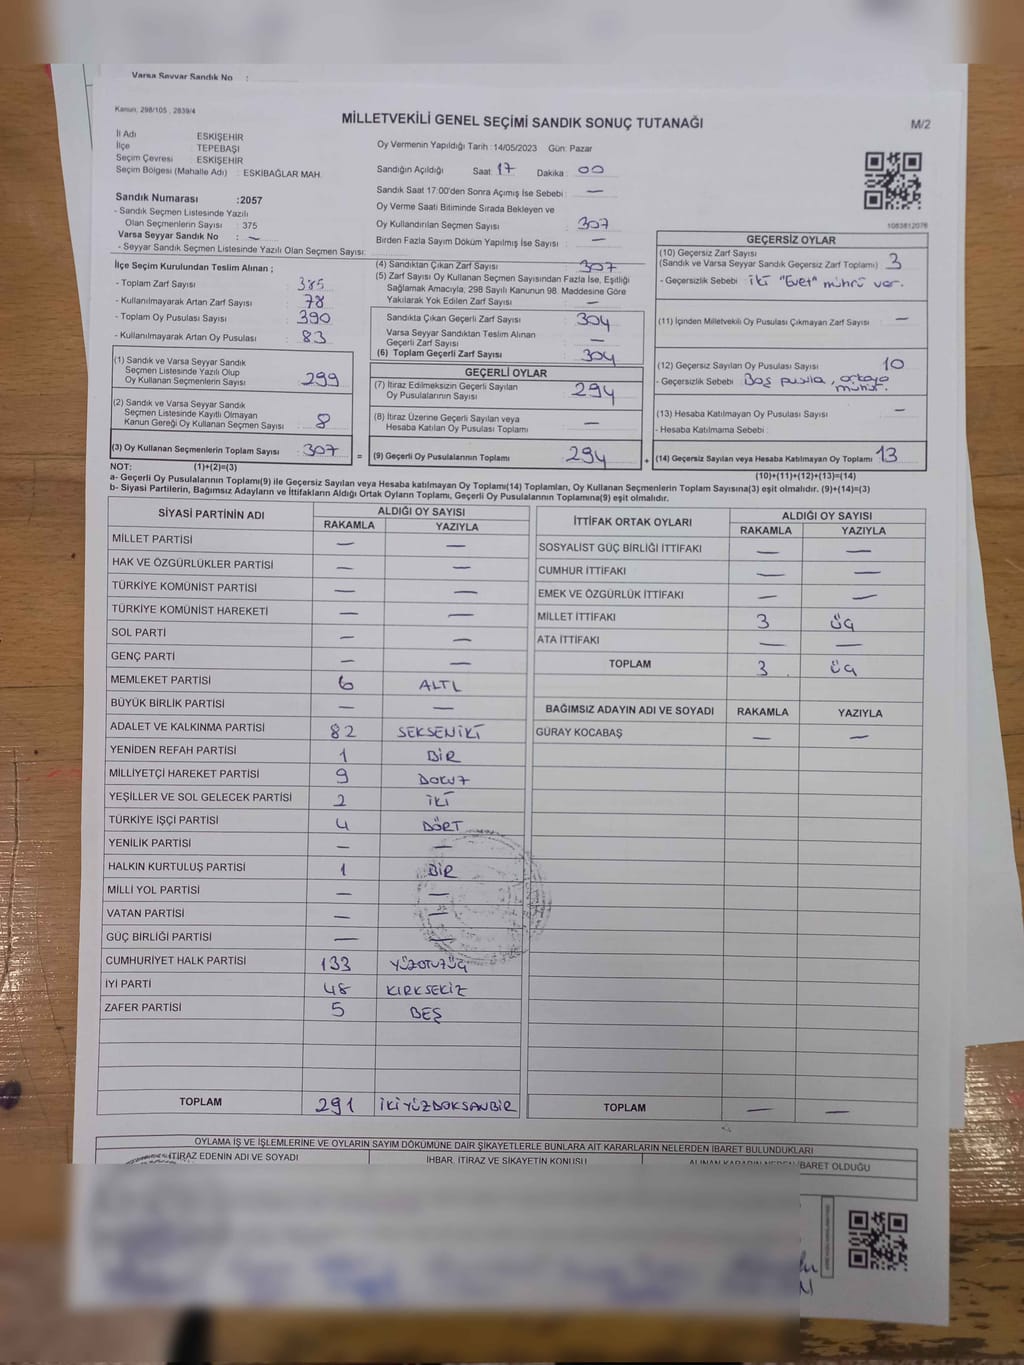 Varsa Seyyar Sandık No :
Kanun; 298/105 , 2839/4
MİLLETVEKİLİ GENEL SEÇİMİ SANDIK SONUÇ TUTANAĞI
M/2
İl Adı ESKİŞEHİR
İlçe : TEPEBAŞI
Seçim Çevresi : ESKİŞEHİR
Seçim Bölgesi (Mahalle Adı) : ESKİBAĞLAR MAH.
Sandık Numarası :2057
- Sandık Seçmen Listesinde Yazılı
Olan Seçmenlerin Sayısı : 375
Varsa Seyyar Sandık No : —
- Seyyar Sandık Seçmen Listesinde Yazılı Olan Seçmen Sayısı:
Oy Vermenin Yapıldığı Tarih : 14/05/2023 Gün: Pazar
Sandığın Açıldığı Saat: 17 Dakika : 00
Sandık Saat 17:00'den Sonra Açımış İse Sebebi : —
Oy Verme Saati Bitiminde Sırada Bekleyen ve
Oy Kullandırılan Seçmen Sayısı : 307
Birden Fazla Sayım Döküm Yapılmış İse Sayısı : —
1083812076
İlçe Seçim Kurulundan Teslim Alınan ;
- Toplam Zarf Sayısı : 385
- Kullanılmayarak Artan Zarf Sayısı : 78
- Toplam Oy Pusulası Sayısı : 390
- Kullanılmayarak Artan Oy Pusulası : 83
(1) Sandık ve Varsa Seyyar Sandık
Seçmen Listesinde Yazılı Olup
Oy Kullanan Seçmenlerin Sayısı : 299
(2) Sandık ve Varsa Seyyar Sandık
Seçmen Listesinde Kayıtlı Olmayan
Kanun Gereği Oy Kullanan Seçmen Sayısı : 8
(3) Oy Kullanan Seçmenlerin Toplam Sayısı : 307
(4) Sandıktan Çıkan Zarf Sayısı : 307
(5) Zarf Sayısı Oy Kullanan Seçmen Sayısından Fazla İse, Eşitliği
Sağlamak Amacıyla, 298 Sayılı Kanunun 98. Maddesine Göre
Yakılarak Yok Edilen Zarf Sayısı : —
Sandıkta Çıkan Geçerli Zarf Sayısı : 304
Varsa Seyyar Sandıktan Teslim Alınan
Geçerli Zarf Sayısı : —
(6) Toplam Geçerli Zarf Sayısı : 304
GEÇERLİ OYLAR
(7) İtiraz Edilmeksizin Geçerli Sayılan
Oy Pusulalarının Sayısı : 294
(8) İtiraz Üzerine Geçerli Sayılan veya
Hesaba Katılan Oy Pusulası Toplamı : —
= (9) Geçerli Oy Pusulalarının Toplamı : 294
GEÇERSİZ OYLAR
(10) Geçersiz Zarf Sayısı
(Sandık ve Varsa Seyyar Sandık Geçersiz Zarf Toplamı) : 3
- Geçersizlik Sebebi : iki "Evet" mührü var.
(11) İçinden Milletvekili Oy Pusulası Çıkmayan Zarf Sayısı : —
(12) Geçersiz Sayılan Oy Pusulası Sayısı : 10
- Geçersizlik Sebebi : Boş pusula, ortaya
mühür.
(13) Hesaba Katılmayan Oy Pusulası Sayısı : —
- Hesaba Katılmama Sebebi :
+ (14) Geçersiz Sayılan veya Hesaba Katılmayan Oy Toplamı : 13
NOT: (1)+(2)=(3) (10)+(11)+(12)+(13)=(14)
a- Geçerli Oy Pusulalarının Toplamı(9) ile Geçersiz Sayılan veya Hesaba katılmayan Oy Toplamı(14) Toplamları, Oy Kullanan Seçmenlerin Toplam Sayısına(3) eşit olmalıdır. (9)+(14)=(3)
b- Siyasi Partilerin, Bağımsız Adayların ve İttifakların Aldığı Ortak Oyların Toplamı, Geçerli Oy Pusulalarının Toplamına(9) eşit olmalıdır.
SİYASİ PARTİNİN ADI ALDIĞI OY SAYISI
RAKAMLA YAZIYLA
MİLLET PARTİSİ — —
HAK VE ÖZGÜRLÜKLER PARTİSİ — —
TÜRKİYE KOMÜNİST PARTİSİ — —
TÜRKİYE KOMÜNİST HAREKETİ — —
SOL PARTİ — —
GENÇ PARTİ — —
MEMLEKET PARTİSİ 6 ALTI
BÜYÜK BİRLİK PARTİSİ — —
ADALET VE KALKINMA PARTİSİ 82 SEKSENİKİ
YENİDEN REFAH PARTİSİ 1 BİR
MİLLİYETÇİ HAREKET PARTİSİ 9 DOKUZ
YEŞİLLER VE SOL GELECEK PARTİSİ 2 İKİ
TÜRKİYE İŞÇİ PARTİSİ 4 DÖRT
YENİLİK PARTİSİ — —
HALKIN KURTULUŞ PARTİSİ 1 BİR
MİLLİ YOL PARTİSİ — —
VATAN PARTİSİ — —
GÜÇ BİRLİĞİ PARTİSİ — —
CUMHURİYET HALK PARTİSİ 133 YÜZOTUZÜÇ
İYİ PARTİ 48 KIRKSEKİZ
ZAFER PARTİSİ 5 BEŞ
TOPLAM 291 İKİYÜZDOKSANBİR
İTTİFAK ORTAK OYLARI ALDIĞI OY SAYISI
RAKAMLA YAZIYLA
SOSYALİST GÜÇ BİRLİĞİ İTTİFAKI — —
CUMHUR İTTİFAKI — —
EMEK VE ÖZGÜRLÜK İTTİFAKI — —
MİLLET İTTİFAKI 3 ÜÇ
ATA İTTİFAKI — —
TOPLAM 3 ÜÇ
BAĞIMSIZ ADAYIN ADI VE SOYADI RAKAMLA YAZIYLA
GÜRAY KOCABAŞ — —
TOPLAM — —
OYLAMA İŞ VE İŞLEMLERİNE VE OYLARIN SAYIM DÖKÜMÜNE DAİR ŞİKAYETLERLE BUNLARA AİT KARARLARIN NELERDEN İBARET BULUNDUKLARI
İTİRAZ EDENİN ADI VE SOYADI İHBAR, İTİRAZ VE ŞİKAYETİN KONUSU ALINAN KARARIN NEDEN İBARET OLDUĞU